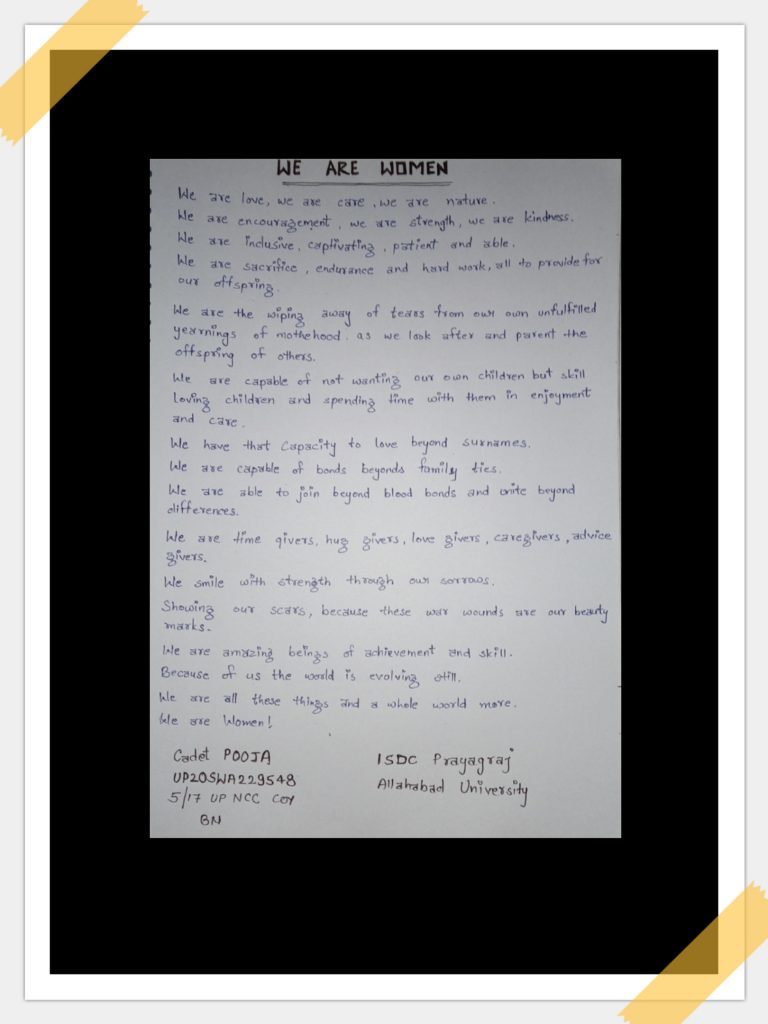 WE ARE WOMEN
We are love, we are care, we are nature.
We are encouragement, we are strength, we are kindness.
We are inclusive, captivating, patient and able.
We are sacrifice, endurance and hard work, all to provide for
our offspring.
We are the wiping away of tears from our own unfulfilled
yearnings of mothehood. as we look after and parent the
offspring of others.
We are capable of not wanting our own children but skill
loving children and spending time with them in enjoyment
and care.
We have that capacity to love beyond surnames.
We are capable of bonds beyonds family ties.
We are able to join beyond blood bonds and unite beyond
differences.
We are time givers, hug givers, love givers, caregivers, advice
givers.
We smile with strength through our sorrows.
Showing our scars, because these war wounds are our beauty
marks.
We are amazing beings of achievement and skill.
Because of us the world is evolving still.
We are all these things and a whole world more.
We are Women!
Cadet POOJA
UP20SWA229548
5/17 UP NCC COY
BN
ISDC Prayagraj
Allahabad University